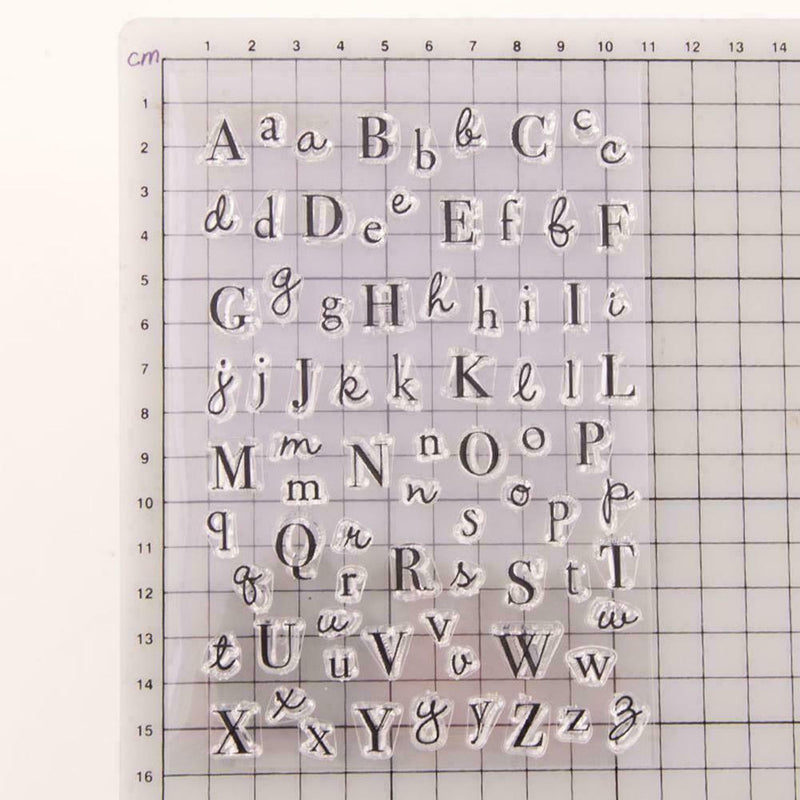 cm 1 2 3 4 5 6 7 8 9 10 11 12 13 14
1
2
3
4
5
6
7
8
9
10
11
12
13
14
15
16
A a a B b b C c c
d d D e e E f f F
G g g H h h i I i
j j J k k K l l L
M m m N n n O o o P
q q Q r r R s s S p p t T
t U u u V v v W w w
X x x Y y y Z z z